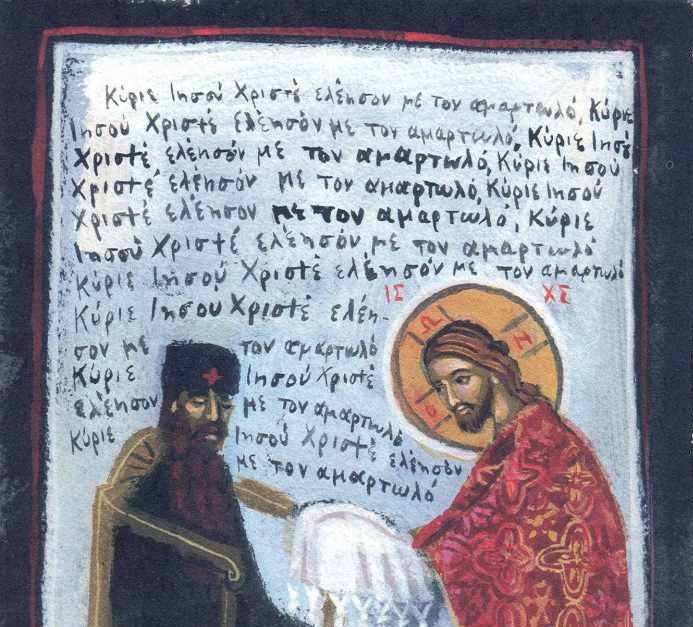 Κύριε Ιησού Χριστέ ελέησον με τον αμαρτωλό, Κύριε
Ιησού Χριστέ ελέησόν με τον αμαρτωλό, Κύριε Ιησού
Χριστέ ελέησόν με τον αμαρτωλό, Κύριε Ιησού
Χριστέ ελέησον με τον αμαρτωλό, Κύριε Ιησού
Χριστέ ελέησον με τον αμαρτωλό, Κύριε
Ιησού Χριστέ ελέησόν με τον αμαρτωλό
Κύριε Ιησού Χριστέ ελέησόν με τον αμαρτωλό
Κύριε Ιησου Χριστέ ελέη-
ΙΣ ΧΣ
Ο Ω Ν
σον με τον αμαρτωλό
Κύριε Ιησού Χριστέ
ελέησον με τον αμαρτωλό
Κύριε Ιησού Χριστέ ελέησόν
με τον αμαρτωλό